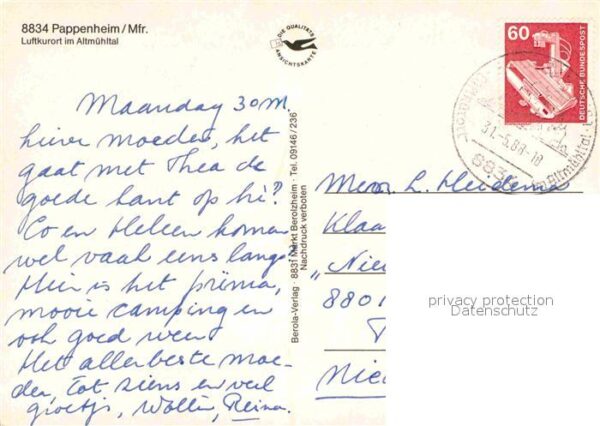 8834 Pappenheim/Mfr.
Luftkurort im Altmühltal
DIE QUALITÄTS
ANSICHTSKARTE
60
DEUTSCHE BUNDESPOST
31.-5.88-18
883
Altmühltal
Maandag 30 M.
moeder, het
gaat met Thea de
goede kant op hè?
Co en Heleen komen
wel vaak eens langs
Hier is het prima,
mooie camping en
ook goed weer
Het allerbeste moe-
der, tot ziens en veel
groetjs, Wolter, Reina.
Berola-Verlag 8831 Markt Berolzheim · Tel. 09146/236
Nachdruck verboten
Mevr. L. Heidema
Klaa
"Nieu
8801
Nie
privacy protection
Datenschutz